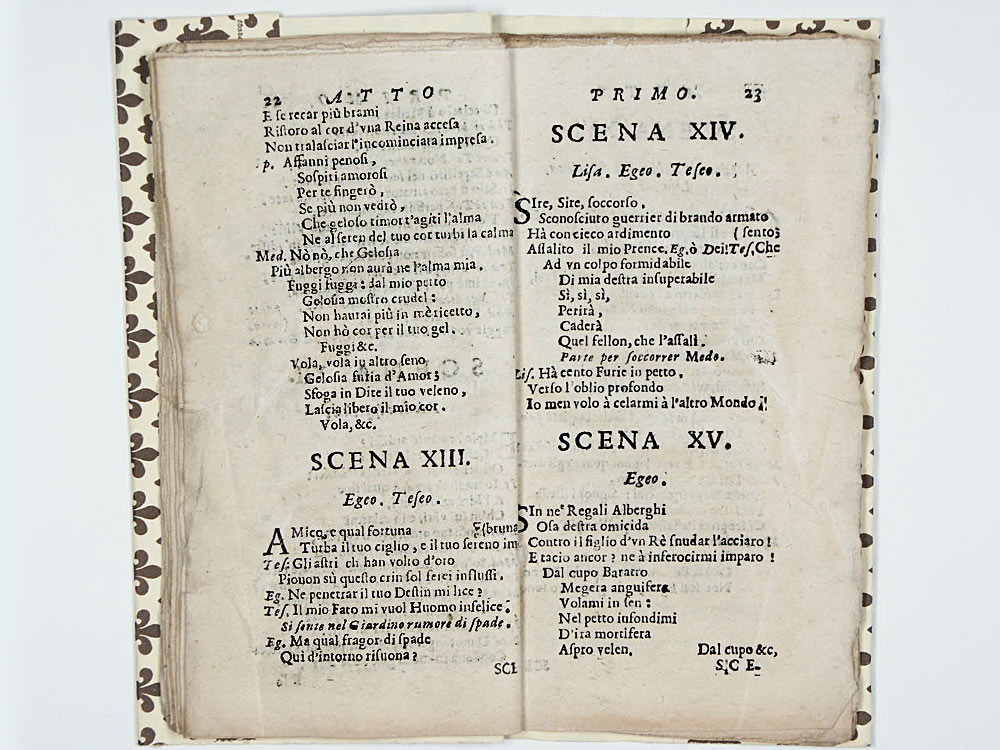 22 ATTO
E se recar più brami
Ristoro al cor d'vna Reina accesa
Non tralasciar l'incominciata impresa.
p. Affanni penosi,
Sospiri amorosi
Per te fingerò,
Se più non vedrò,
Che geloso timor t'agiti l'alma
Ne al seren del tuo cor turbi la calma
Med. Nò nò, che Gelosia
Più albergo non aurà ne l'alma mia.
Fuggi fugga: dal mio petto
Gelosia mostro crudel:
Non haurai più in mè ricetto,
Non hò cor per il tuo gel.
Fuggi &c.
Vola, vola in altro seno
Gelosia furia d'Amor;
Sfoga in Dite il tuo veleno,
Lascia libero il mio cor.
Vola, &c.
SCENA XIII.
Egeo. Teseo.
AMico, e qual fortuna (bruna
Turba il tuo ciglio, e il tuo sereno im
Tes. Gli astri ch han volto d'oro
Piouon sù questo crin sol serei influssi.
Eg. Ne penetrar il tuo Destin mi lice?
Tes. Il mio Fato mi vuol Huomo infelice.
Si sente nel Giardino rumore di spade.
Eg. Ma qual fragor di spade
Quì d'intorno risuona?
SCE
PRIMO. 23
SCENA XIV.
Lisa. Egeo. Teseo.
SIre, Sire, soccorso.
Sconosciuto guerrier di brando armato
Hà con cieco ardimento (sento;
Assalito il mio Prence. Eg. ò Dei! Tes. Che
Ad vn colpo formidabile
Di mia destra insuperabile
Sì, sì, sì,
Perirà,
Caderà
Quel fellon, che l'assalì.
Parte per soccorrer Medo.
Lis. Hà cento Furie in petto.
Verso l'oblio profondo
Io men volo à celarmi à l'altro Mondo!
SCENA XV.
Egeo.
SIn ne' Regali Alberghi
Osa destra omicida
Contro il figlio d'vn Rè snudar l'acciaro!
E tacio ancor? ne à inferocirmi imparo!
Dal cupo Baratro
Megera anguifera
Volami in sen:
Nel petto infondimi
D'ira mortifera
Aspro velen. Dal cupo &c,
SCE-